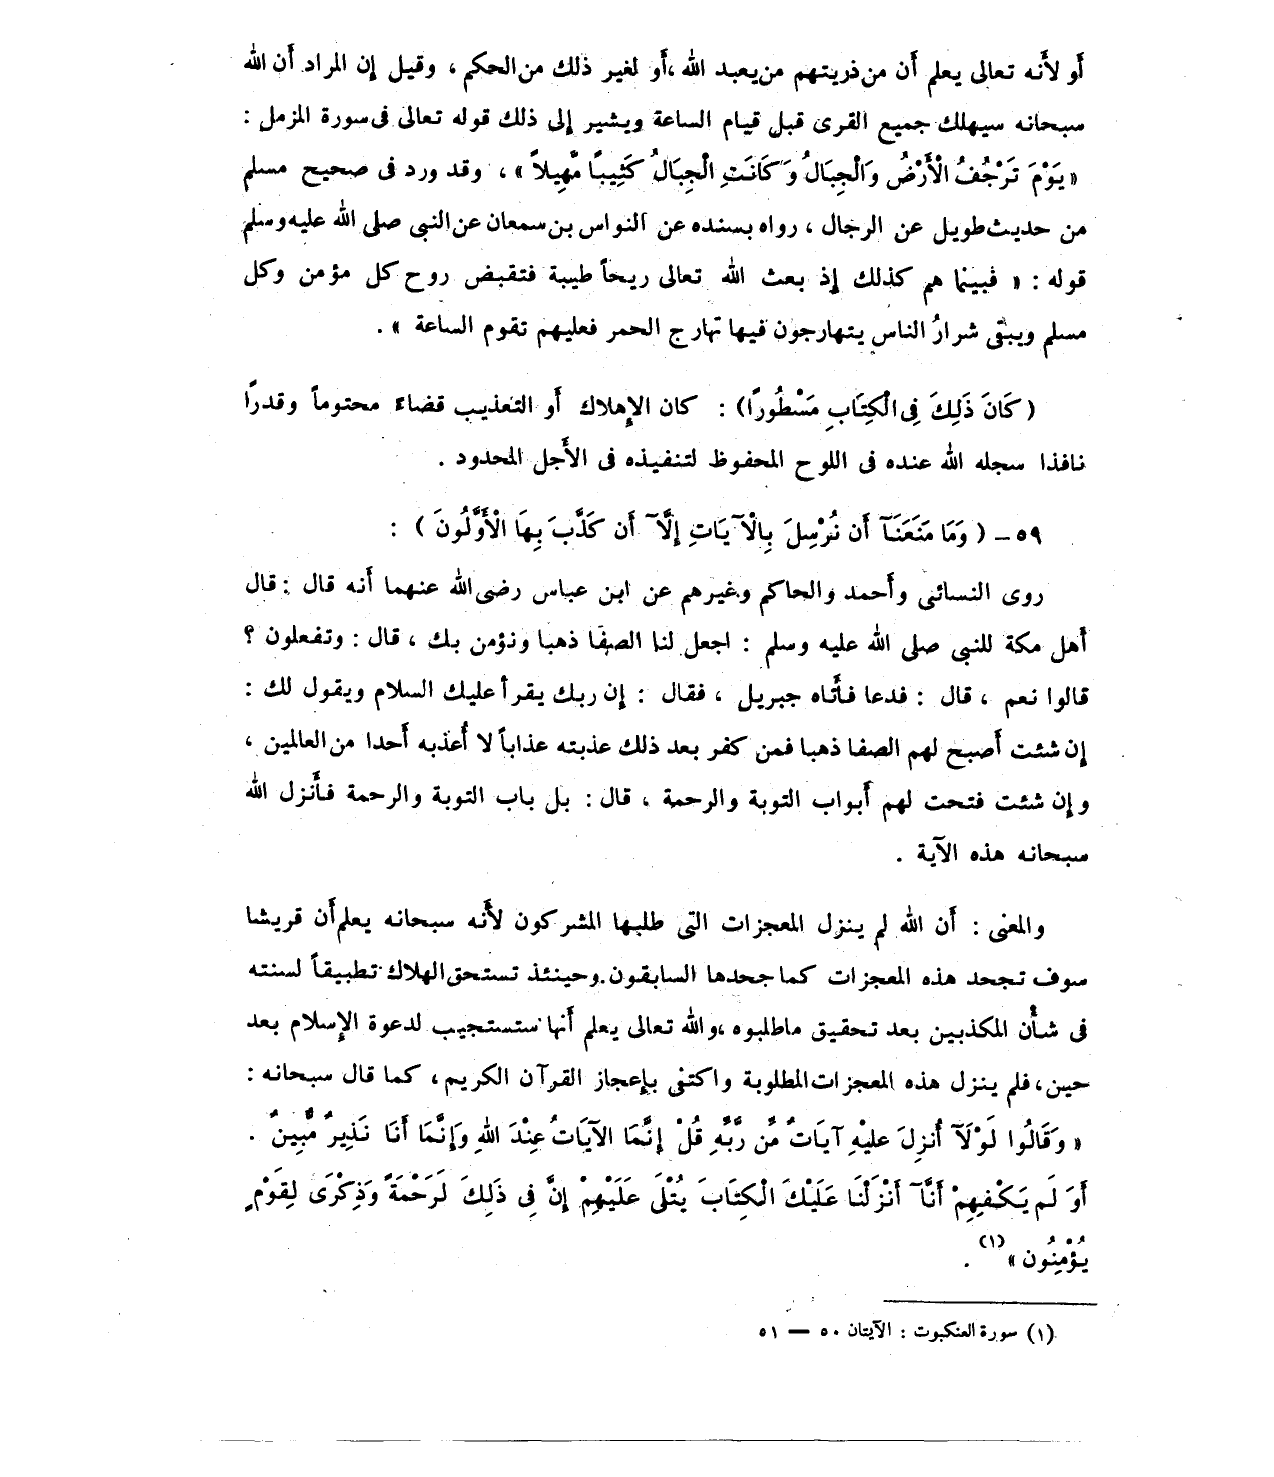 أو لأنه تعالى يعلم أن من ذريتهم من يعبد الله ، أو لغير ذلك من الحكم ، وقيل إن المراد أن الله
سبحانه سيهلك جميع القرى قبل قيام الساعة ويشير إلى ذلك قوله تعالى فى سورة المزمل :
« يَوْمَ تَرْجُفُ الْأَرْضُ وَالْجِبَالُ وَكَانَتِ الْجِبَالُ كَثِيبًا مَّهِيلاً » ، وقد ورد فى صحيح مسلم
من حديث طويل عن الرجال ، رواه بسنده عن النواس بن سمعان عن النبى صلى الله عليه وسلم
قوله : « فبينما هم كذلك إذ بعث الله تعالى ريحاً طيبة فتقبض روح كل مؤمن وكل
مسلم ويبقى شرارُ الناس يتهارجون فيها تهارج الحمر فعليهم تقوم الساعة » .
( كَانَ ذَلِكَ فِى الْكِتَابِ مَسْطُورًا ) : كان الإهلاك أو التعذيب قضاءً محتوماً وقدرًا
نافذا سجله الله عنده فى اللوح المحفوظ لتنفيذه فى الأجل المحدود .
٥٩ – ( وَمَا مَنَعَنَآ أَن نُرْسِلَ بِالْآيَاتِ إِلَّآ أَن كَذَّبَ بِهَا الْأَوَّلُونَ ) :
روى النسائى وأحمد والحاكم وغيرهم عن ابن عباس رضى الله عنهما أنه قال : قال
أهل مكة للنبى صلى الله عليه وسلم : اجعل لنا الصفا ذهبا ونؤمن بك ، قال : وتفعلون ؟
قالوا نعم ، قال : فدعا فأتاه جبريل ، فقال : إن ربك يقرأ عليك السلام ويقول لك :
إن شئت أصبح لهم الصفا ذهبا فمن كفر بعد ذلك عذبته عذاباً لا أُعذبه أحدا من العالمين ،
وإن شئت فتحت لهم أبواب التوبة والرحمة ، قال : بل باب التوبة والرحمة فأنزل الله
سبحانه هذه الآية .
والمعنى : أن الله لم ينزل المعجزات التى طلبها المشركون لأنه سبحانه يعلم أن قريشا
سوف تجحد هذه المعجزات كما جحدها السابقون . وحينئذ تستحق الهلاك تطبيقاً لسنته
فى شأن المكذبين بعد تحقيق ما طلبوه ، والله تعالى يعلم أنها ستستجيب لدعوة الإسلام بعد
حين ، فلم ينزل هذه المعجزات المطلوبة واكتفى بإعجاز القرآن الكريم ، كما قال سبحانه :
« وَقَالُوا لَوْلَآ أُنزِلَ عليْهِ آيَاتٌ مِّن رَّبِّهِ قُلْ إِنَّمَا الآيَاتُ عِنْدَ اللهِ وَإِنَّمَا أَنَا نَذِيرٌ مُّبِينٌ .
أَوَ لَم يَكْفِهِمْ أَنَّآ أَنْزَلْنَا عَلَيْكَ الْكِتَابَ يُتْلَى عَلَيْهِمْ إِنَّ فِى ذَلِكَ لَرَحْمَةً وَذِكْرَى لِقَوْمٍ
يُؤْمِنُون » (١) .
(١) سورة العنكبوت : الآيتان ٥٠ — ٥١